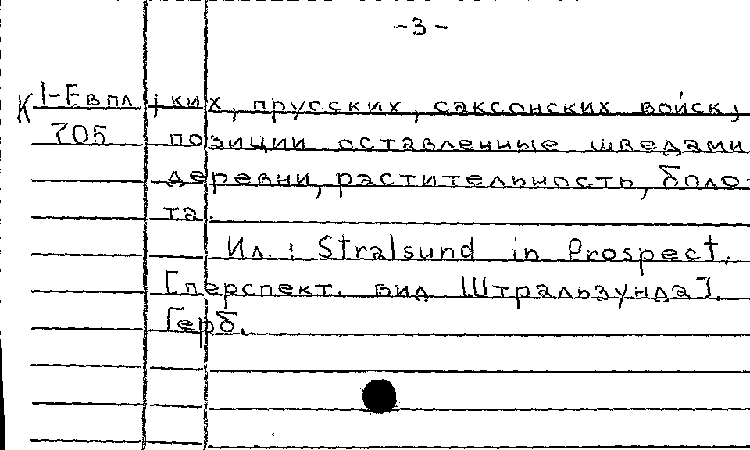 -3-
К 1-Евпл ких, прусских, саксонских войск;
705 позиции оставленные шведами
деревни, растительность, боло-
та.
Ил.: Stralsund in Prospect.
[перспект. вид Штральзунда].
Герб.